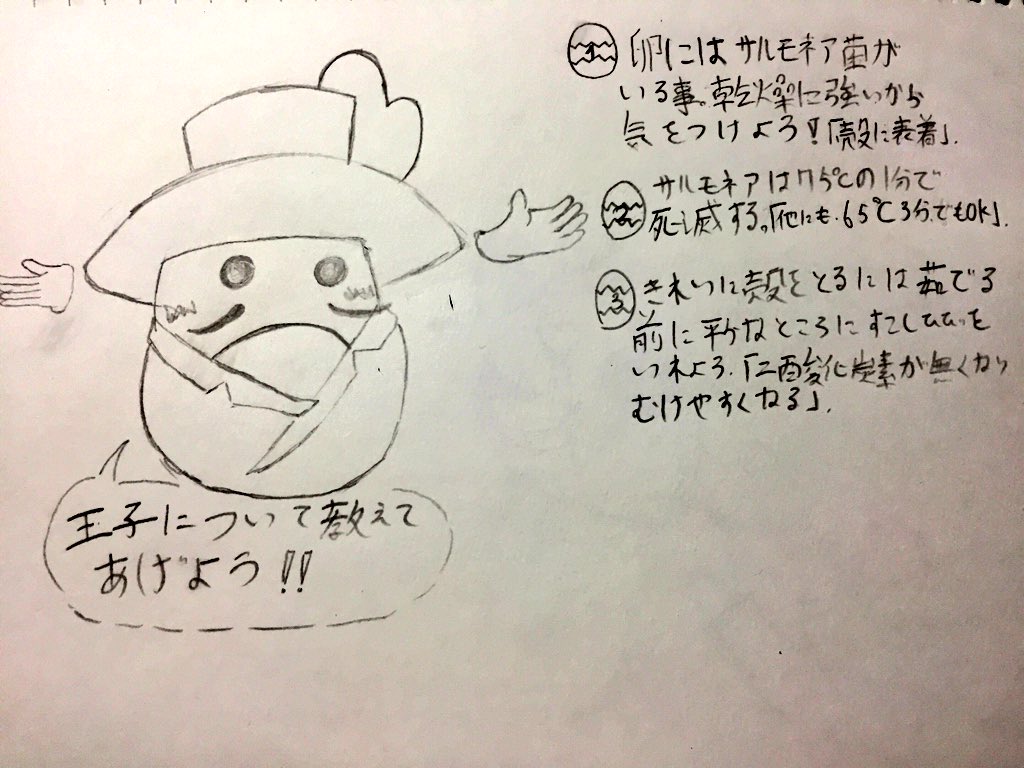 1 卵にはサルモネア菌が
いる事。乾燥に強いから
気をつけよう!「殻に表着」.
2 サルモネアは75℃の1分で
死滅する。「他にも.65℃3分でもOK」.
3 きれいに殻をとるには茹でる
前に平なところにすこしヒビを
いれよう.「二酸化炭素が無くなり
むけやすくなる」.
王子について教えて
あげよう!!